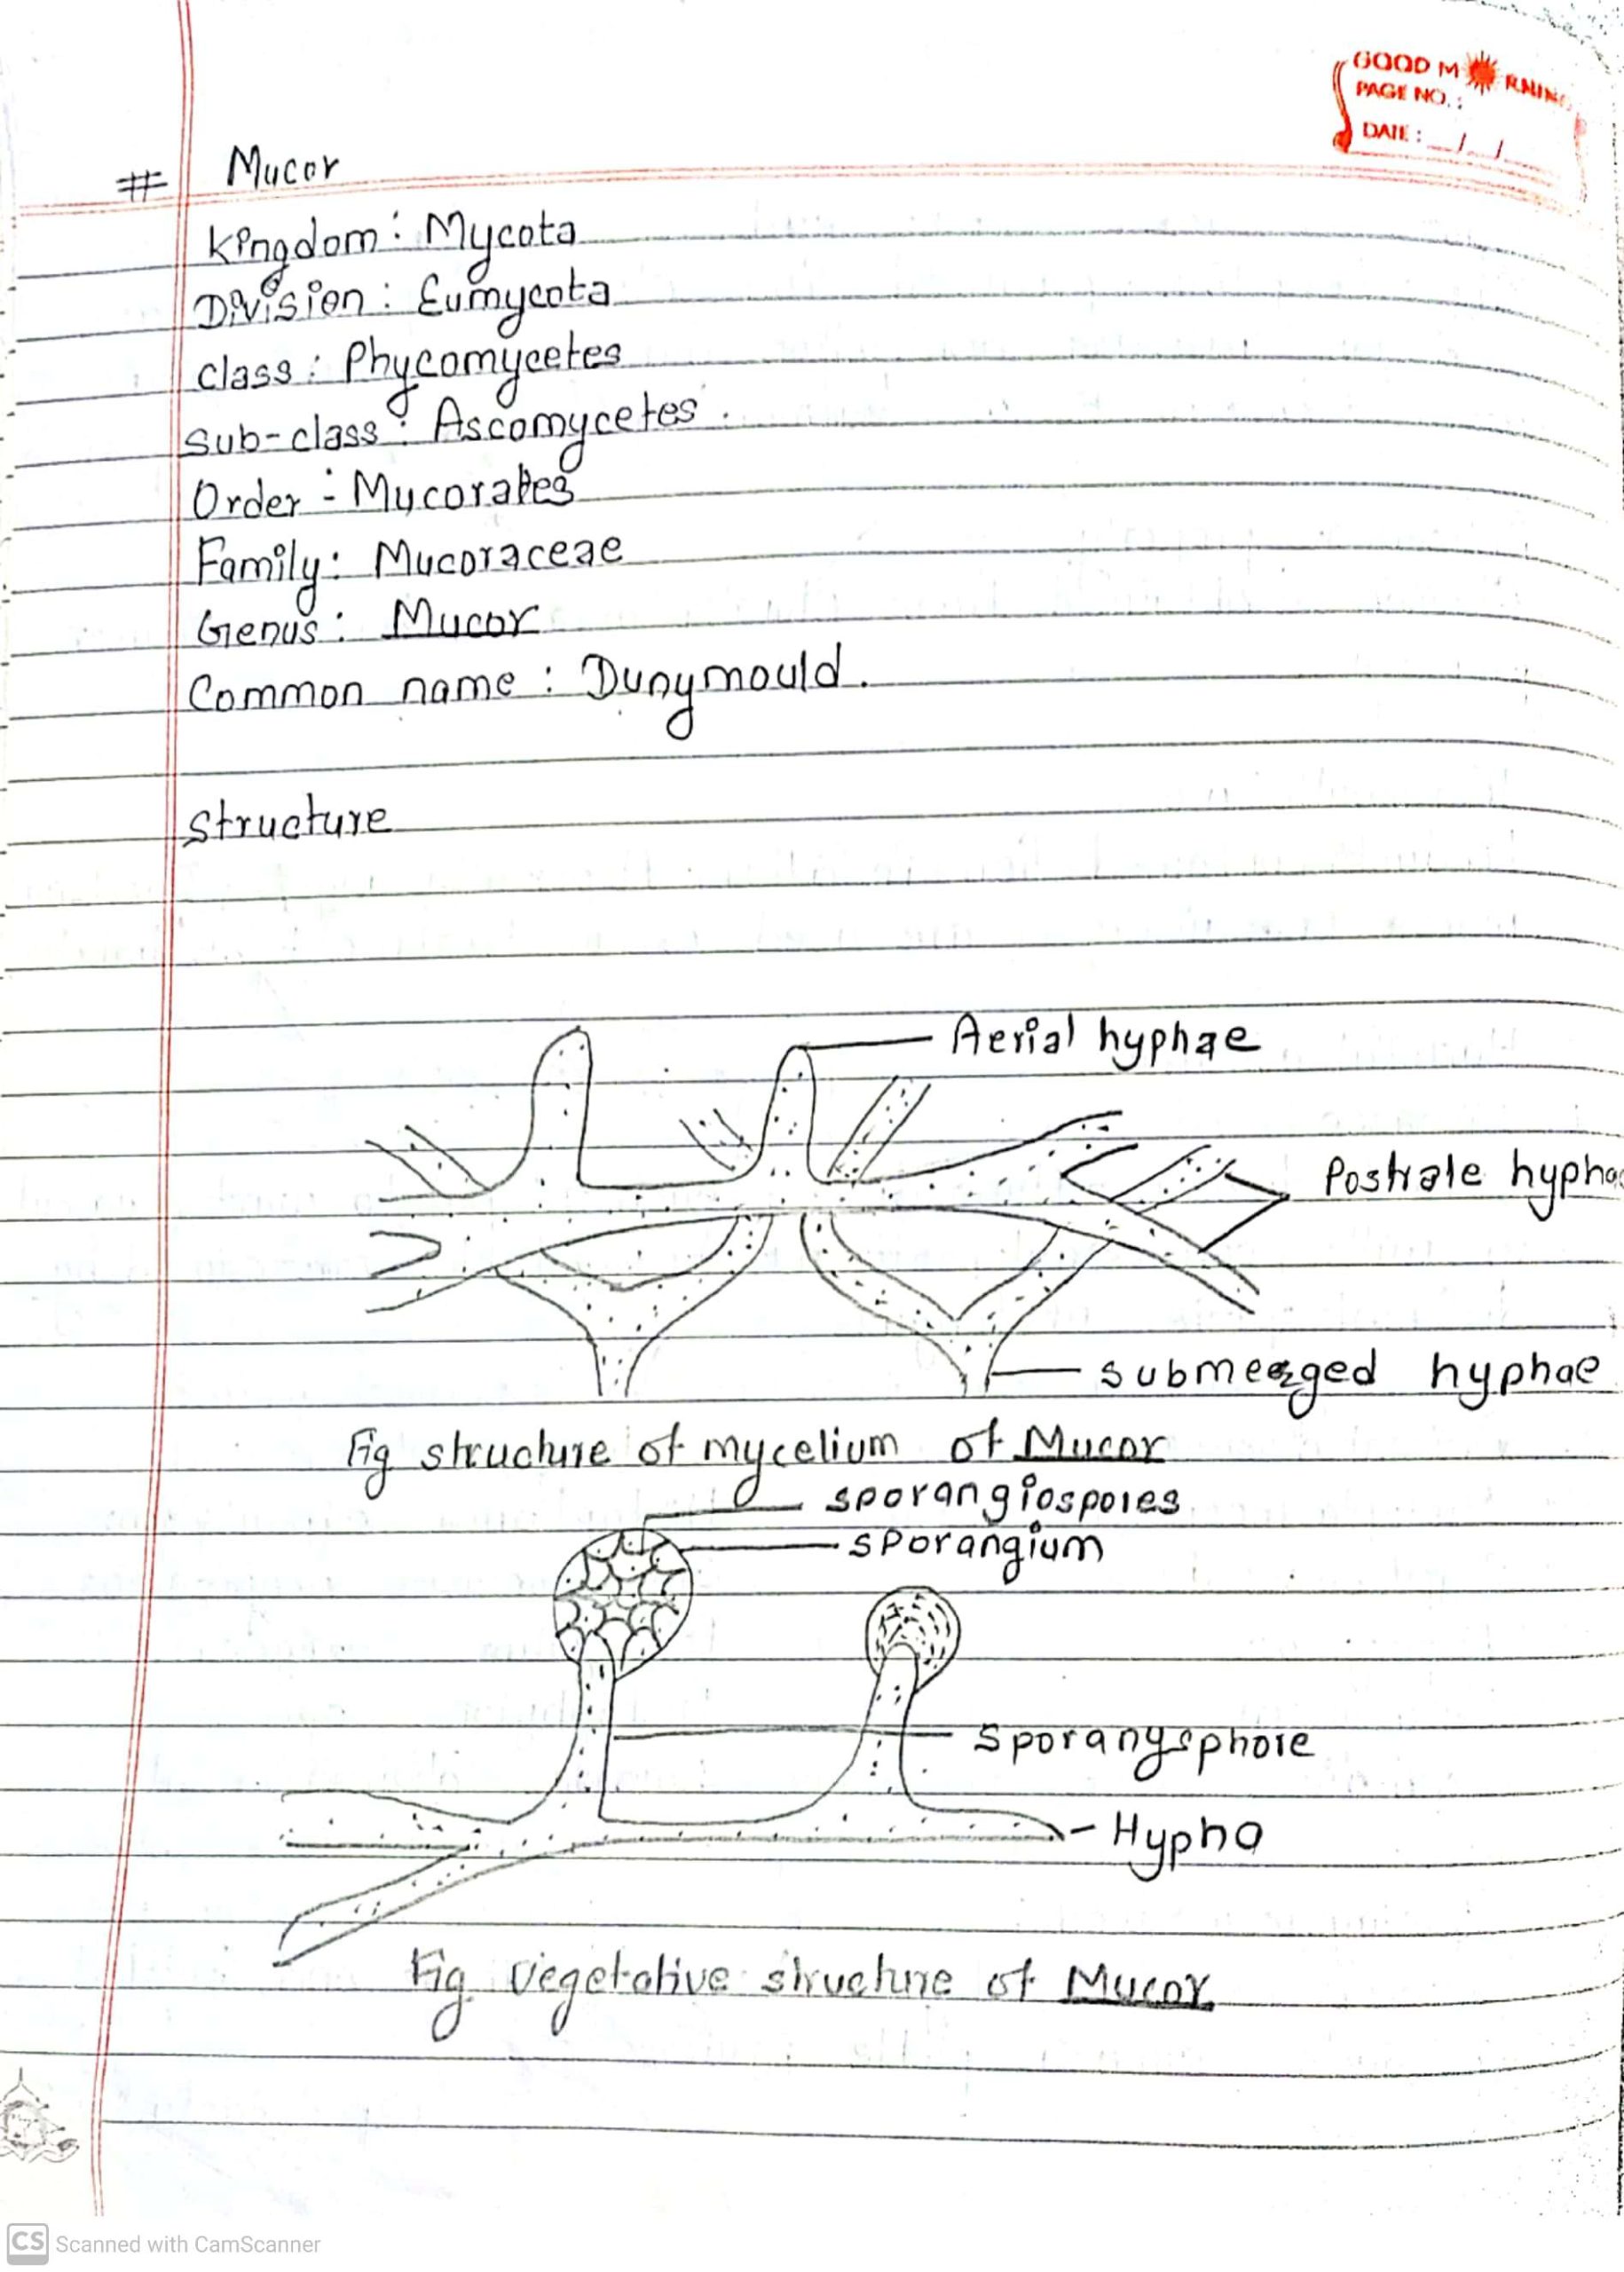 GOOD MORNING
PAGE NO.:
DATE: / /
# Mucor
Kingdom: Mycota
Division: Eumycota
class: Phycomycetes
Sub-class: Ascomycetes.
Order :- Mucorales
Family: Mucoraceae
Genus: Mucor
Common name: Dungmould.
structure
Aerial hyphae
Postrate hyphae
submerged hyphae
Fig structure of mycelium of Mucor
sporangiospores
sporangium
Sporangephore
Hypha
Fig vegetative structure of Mucor
CS Scanned with CamScanner